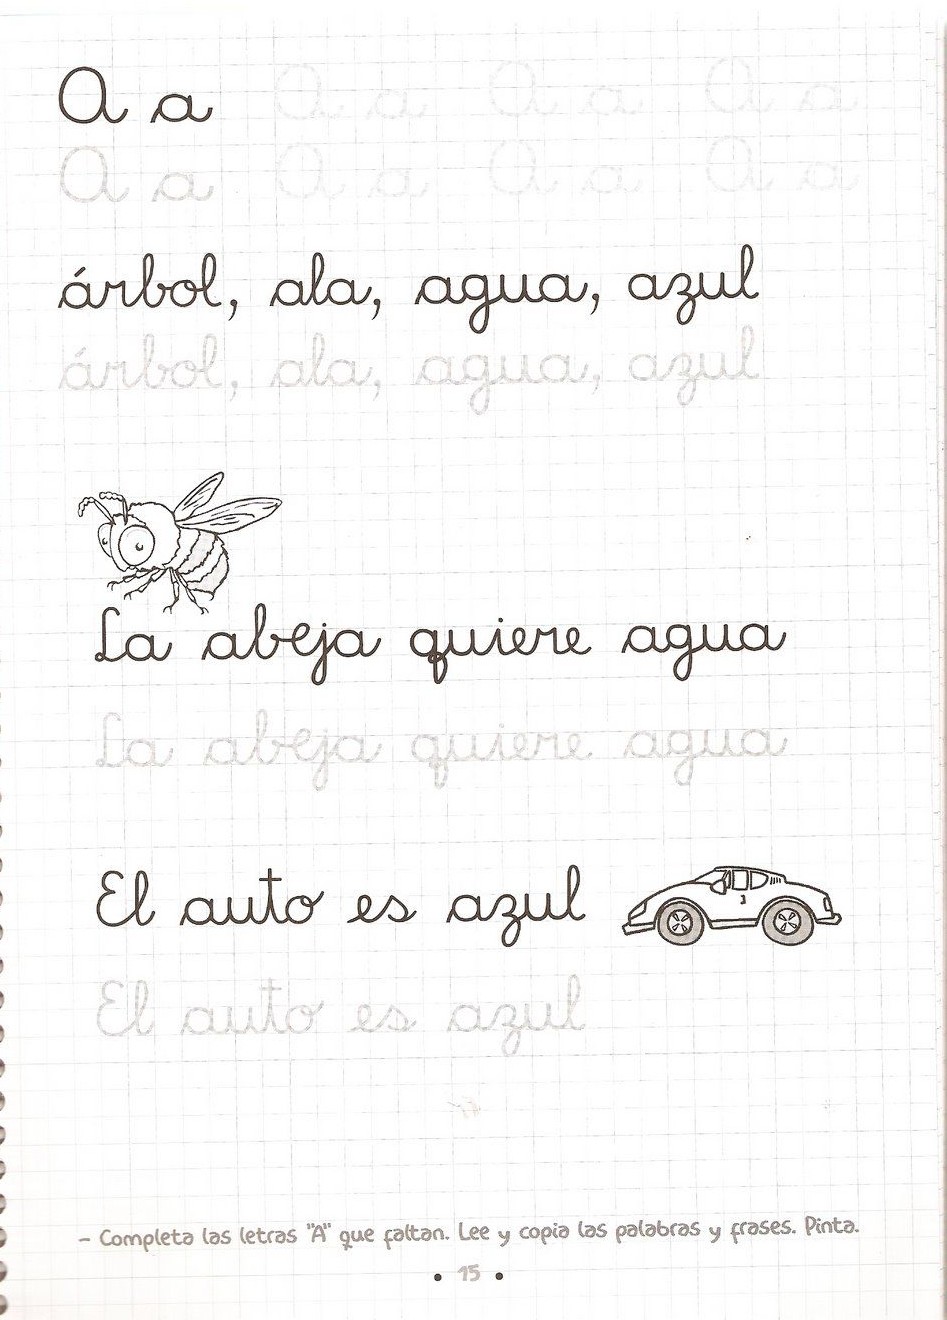 A a A a A a A a
A a A a A a A a
árbol, ala, agua, azul
árbol, ala, agua, azul
La abeja quiere agua
La abeja quiere agua
El auto es azul
El auto es azul
– Completa las letras "A" que faltan. Lee y copia las palabras y frases. Pinta.
• 15 •